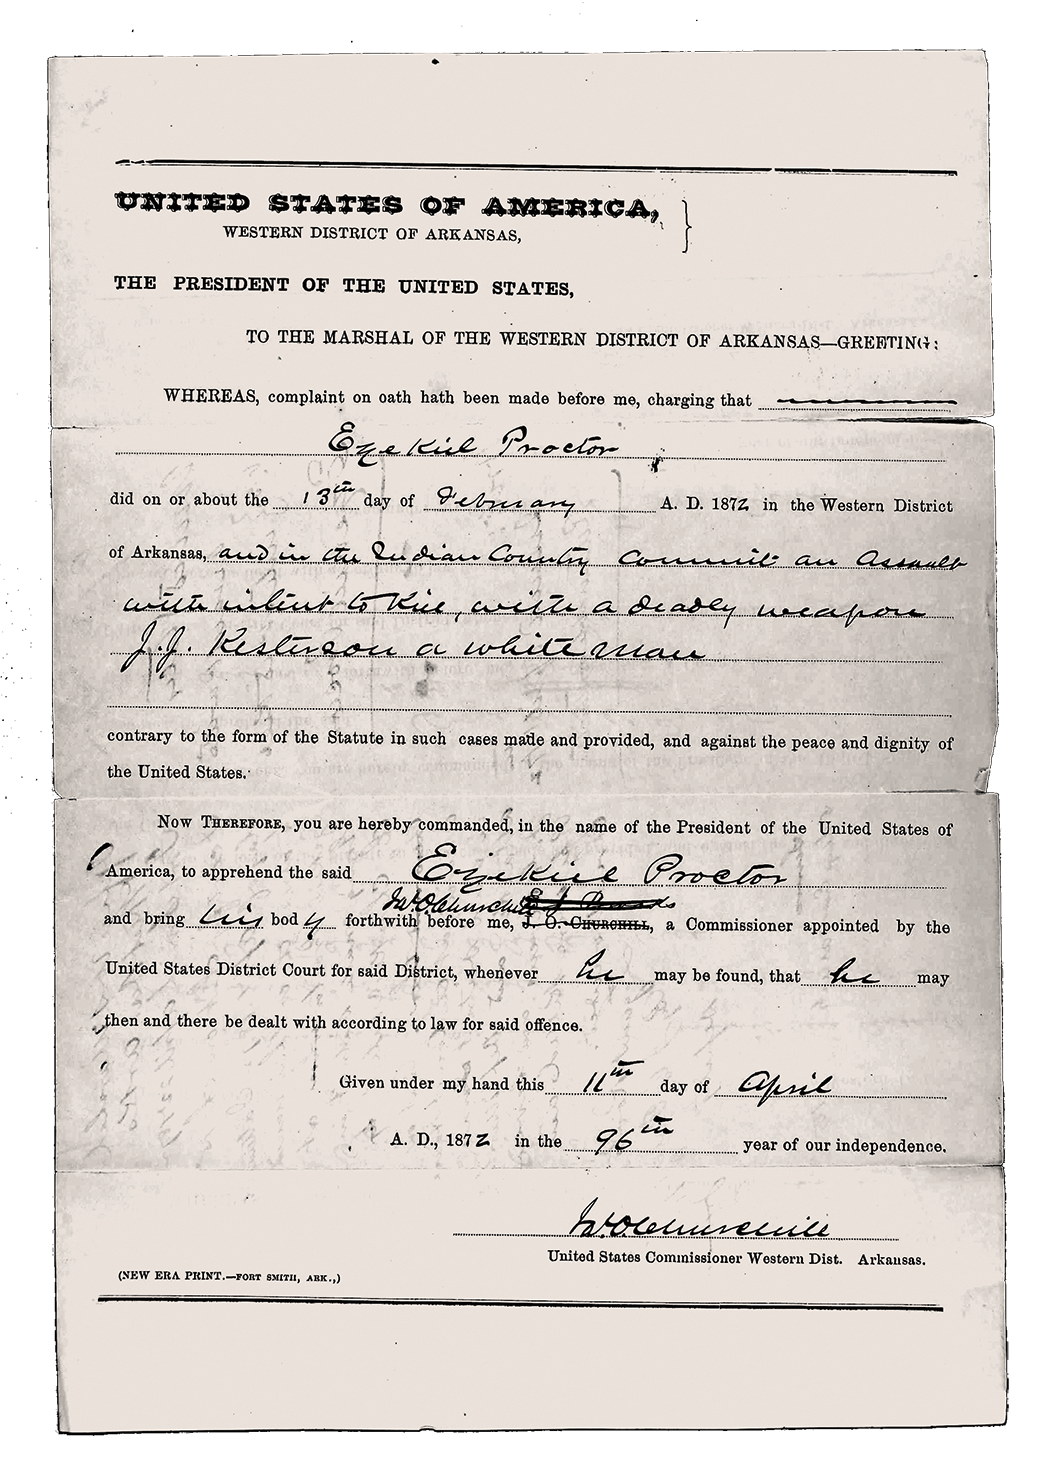 UNITED STATES OF AMERICA, }
WESTERN DISTRICT OF ARKANSAS,
THE PRESIDENT OF THE UNITED STATES,
TO THE MARSHAL OF THE WESTERN DISTRICT OF ARKANSAS—GREETING:
WHEREAS, complaint on oath hath been made before me, charging that
Ezekiel Proctor
did on or about the 13th day of February A. D. 1872 in the Western District
of Arkansas, and in the Indian Country commit an Assault
with intent to Kill, with a deadly weapon
J. J. Kesterson a white man
contrary to the form of the Statute in such cases made and provided, and against the peace and dignity of
the United States.
NOW THEREFORE, you are hereby commanded, in the name of the President of the United States of
America, to apprehend the said Ezekiel Proctor
W. O. Churchill
and bring his body forthwith before me, J. O. CHURCHILL, a Commissioner appointed by the
United States District Court for said District, whenever he may be found, that he may
then and there be dealt with according to law for said offence.
Given under my hand this 11th day of April
A. D., 1872 in the 96th year of our independence.
J. O. Churchill
United States Commissioner Western Dist. Arkansas.
(NEW ERA PRINT.—FORT SMITH, ARK.,)